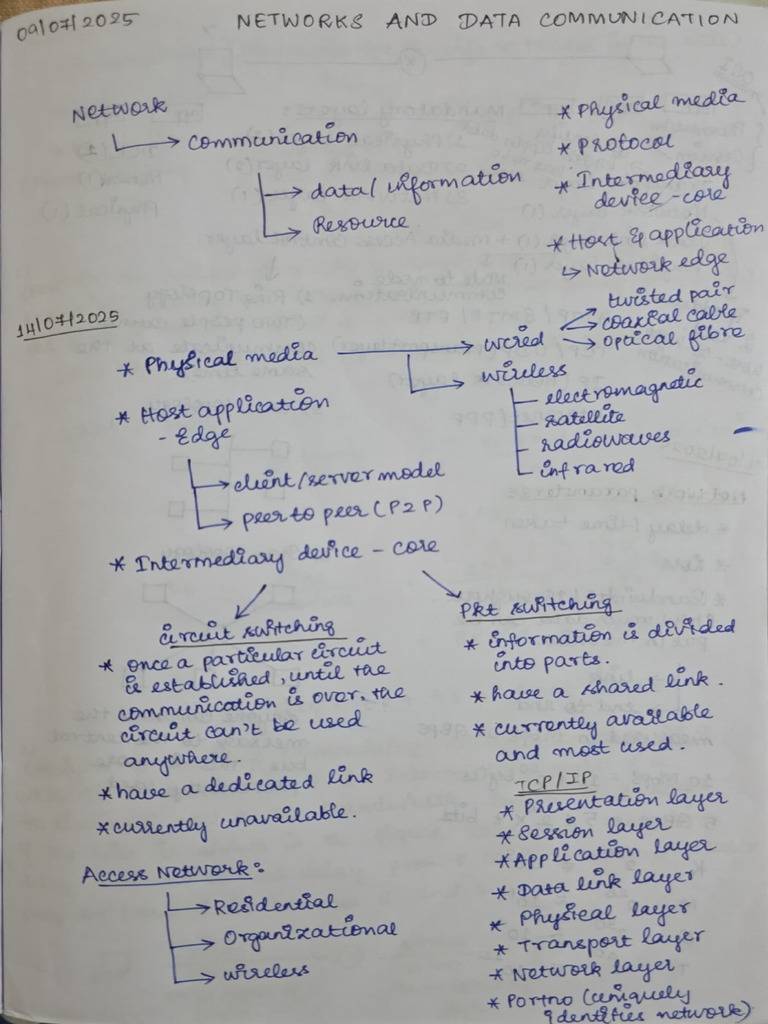 09/07/2025
NETWORKS AND DATA COMMUNICATION
Network
→ communication
→ data/information
→ Resource
* Physical media
* Protocol
* Intermediary
device - core
* Host & application
↳ Network edge
14/07/2025
* Physical media → wired → twisted pair
→ coaxial cable
→ optical fibre
→ wireless
electromagnetic
satellite
radiowaves
infrared
* Host application
- Edge
→ client/server model
→ peer to peer (P2P)
* Intermediary device - core
circuit switching
* once a particular circuit
is established, until the
communication is over, the
circuit can't be used
anywhere.
* have a dedicated link
* currently unavailable.
Pkt switching
* information is divided
into parts.
* have a shared link.
* currently available
and most used.
Access Network:
→ Residential
→ Organizational
→ wireless
TCP/IP
* Presentation layer
* Session layer
* Application layer
* Data link layer
* Physical layer
* Transport layer
* Network layer
* Portno (uniquely
identifies network)